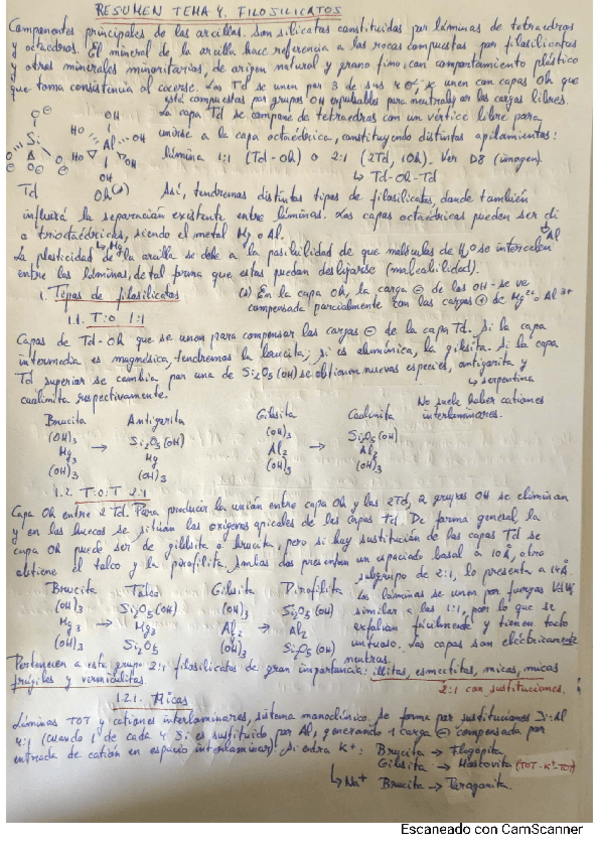 RESUMEN TEMA 4. FILOSILICATOS
Componentes principales de las arcillas. Son silicatos constituidos por láminas de tetraedros
y octaedros. El mineral de la arcilla hace referencia a las rocas compuestas por filosilicatos
y otros minerales minoritarios, de origen natural y grano fino, con comportamiento plástico
que toma consistencia al cocerse. Los Td se unen por 3 de sus 4 O²⁻, se unen con capas Oh que
está compuestas por grupos OH expulsables para neutralizar las cargas libres.
La capa Td se compone de tetraedros con un vértice libre para
unirse a la capa octaédrica, constituyendo distintos apilamientos:
lámina 1:1 (Td-Oh) o 2:1 (2Td, 1Oh). Ver D8 (imagen).
↳ Td-Oh-Td
O⊖
Si
O O O
Td
OH
HO OH
Al
HO OH
OH
Oh(*)
Así, tendremos distintos tipos de filosilicatos, donde también
influirá la separación existente entre láminas. Las capas octaédricas pueden ser di
o trioctaédricas, siendo el metal Mg o Al.
↳ Mg
↳ Al
La plasticidad de la arcilla se debe a la posibilidad de que moléculas de H₂O se intercalen
entre las láminas, de tal forma que estas puedan deslizarse (maleabilidad).
1. Tipos de filosilicatos
(*) En la capa Oh, la carga ⊖ de los OH- se ve
compensada parcialmente con las cargas ⊕ de Mg²⁺ o Al³⁺
1.1. T:O 1:1
Capas de Td-Oh que se unen para compensar las cargas ⊖ de la capa Td. Si la capa
intermedia es magnésica, tendremos la brucita; si es alumínica, la gibsita. Si la capa
Td superior se cambia por una de Si₂O₅(OH) se obtienen nuevas especies, antigorita y
↳ serpentina
caolinita respectivamente.
No suele haber cationes
interlaminares.
Brucita Antigorita Gibsita Caolinita
(OH)₃ Si₂O₅(OH) (OH)₃ Si₂O₅(OH)
Mg₃ → Mg Al₂ → Al₂
(OH)₃ (OH)₃ (OH)₃ (OH)₃
1.2. T:O:T 2:1
Capa Oh entre 2 Td. Para producir la unión entre capa Oh y las 2Td, 2 grupos OH se eliminan
y en los huecos se sitúan los oxígenos apicales de las capas Td. De forma general la
capa Oh puede ser de gibbsita o brucita, pero si hay sustitución de las capas Td se
obtiene el talco y la pirofilita, ambas dos presentan un espaciado basal a 10Å, otro
subgrupo de 2:1, lo presenta a 14Å
Las láminas se unen por fuerzas VdW
similar a las 1:1, por lo que se
exfolian fácilmente y tienen tacto
untuoso. Las capas son eléctricamente
neutras.
Brucita Talco Gibsita Pirofilita
(OH)₃ Si₂O₅(OH) (OH)₃ Si₂O₅(OH)
Mg₃ → Mg₃ Al₂ → Al₂
(OH)₃ Si₂O₅(OH) (OH)₃ Si₂O₅(OH)
Pertenecen a este grupo 2:1 filosilicatos de gran importancia: illitas, esmectitas, micas, micas
frágiles y vermiculitas.
2:1 con sustituciones.
1.2.1. Micas
Láminas TOT y cationes interlaminares, sistema monoclínico. Se forma por sustituciones Si:Al
4:1 (cuando 1 de cada 4 Si es sustituido por Al, generando 1 carga ⊖ compensada por
entrada de catión en espacio interlaminar). Si entra K⁺: Brucita → Flogopita
Gibsita → Moscovita (TOT-K⁺-TOT)
↳ Na⁺ Brucita → Paragonita.
Escaneado con CamScanner